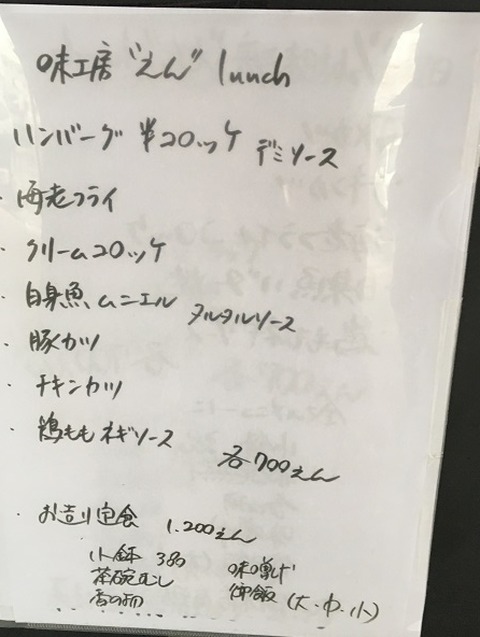 味工房 "えん" lunch
ハンバーグ 半コロッケ デミソース
・海老フライ
・クリームコロッケ
・白身魚ムニエル タルタルソース
・豚カツ
・チキンカツ
・鶏もも ネギソース
各700えん
・お造り定食 1,200えん
小鉢 3色 味噌汁
茶碗むし 御飯 (大・中・小)
香の物